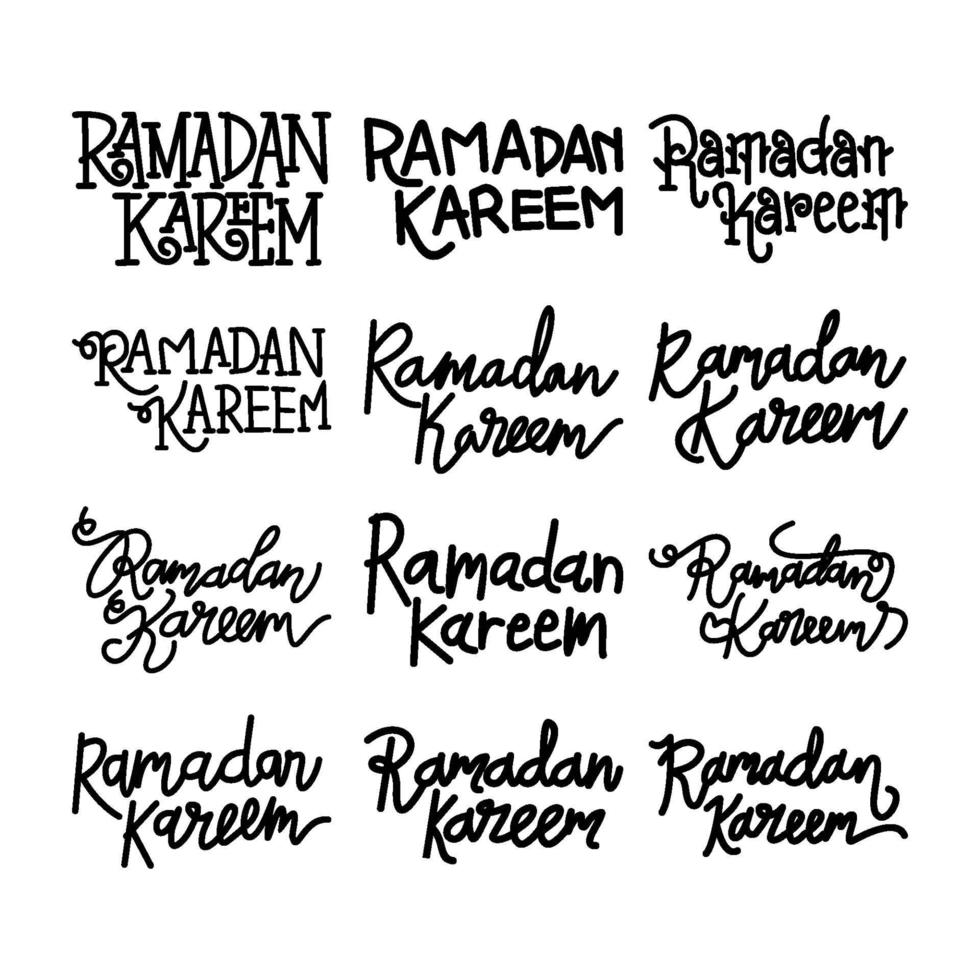 RAMADAN
KAREEM
RAMADAN
KAREEM
Ramadan
Kareem
RAMADAN
KAREEM
Ramadan
Kareem
Ramadan
Kareem
Ramadan
Kareem
Ramadan
Kareem
Ramadan
Kareem
Ramadan
Kareem
Ramadan
Kareem
Ramadan
Kareem